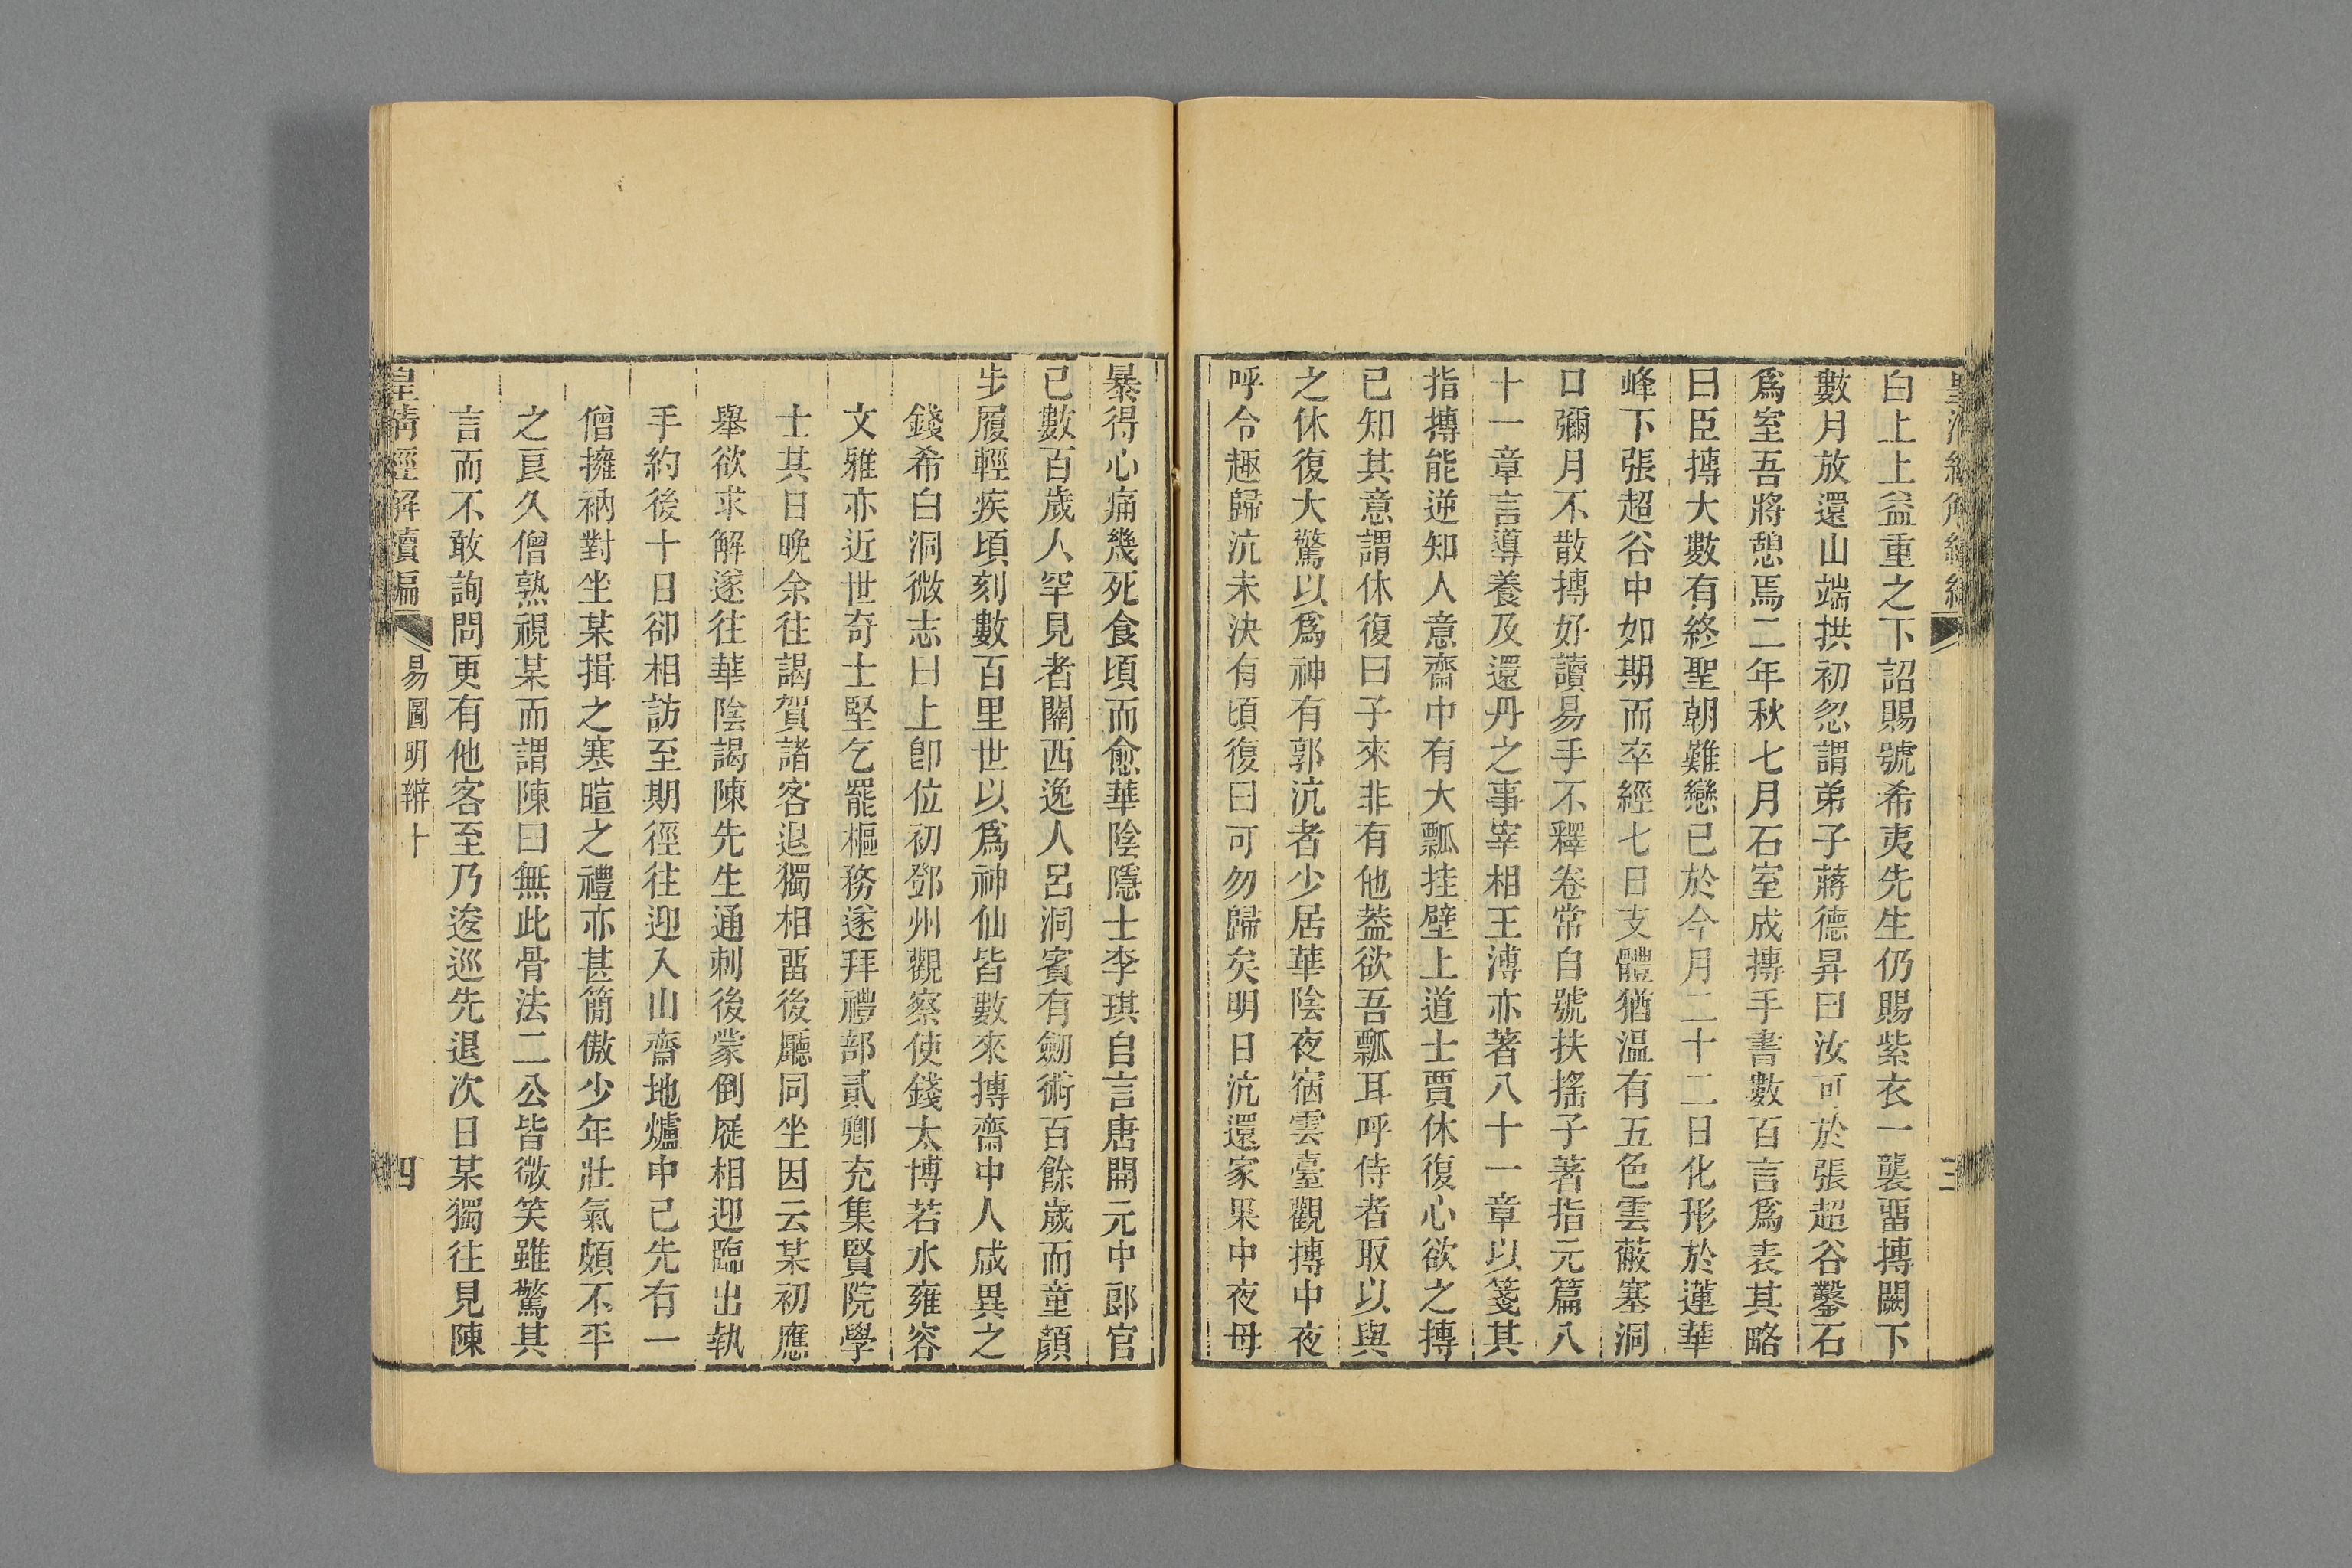 白上上益重之下詔賜號希夷先生仍賜紫衣一襲畱摶闕下
數月放還山端拱初忽謂弟子蔣德昇曰汝可於張超谷鑿石
爲室吾將憩焉二年秋七月石室成摶手書數百言爲表其略
曰臣摶大數有終聖朝難戀已於今月二十二日化形於蓮華
峰下張超谷中如期而卒經七日支體猶温有五色雲蔽塞洞
口彌月不散摶好讀易手不釋卷常自號扶搖子著指元篇八
十一章言導養及還丹之事宰相王溥亦著八十一章以箋其
指摶能逆知人意齋中有大瓢挂壁上道士賈休復心欲之摶
已知其意謂休復曰子來非有他葢欲吾瓢耳呼侍者取以與
之休復大驚以爲神有郭沆者少居華陰夜宿雲臺觀摶中夜
呼令趣歸沆未決有頃復曰可勿歸矣明日沆還家果中夜母
暴得心痛幾死食頃而愈華陰隱士李琪自言唐開元中郎官
已數百歲人罕見者關西逸人呂洞賓有劒術百餘歲而童顏
步履輕疾頃刻數百里世以爲神仙皆數來摶齋中人咸異之
錢希白洞微志曰上卽位初鄧州觀察使錢太博若水雍容
文雅亦近世奇士堅乞罷樞務遂拜禮部貳卿充集賢院學
士其日晚余往謁賀諸客退獨相畱後廳同坐因云某初應
舉欲求解遂往華陰謁陳先生通刺後蒙倒屣相迎臨出執
手約後十日卻相訪至期徑往迎入山齋地爐中已先有一
僧擁衲對坐某揖之寒暄之禮亦甚簡傲少年壯氣頗不平
之良久僧熟視某而謂陳曰無此骨法二公皆微笑雖驚其
言而不敢詢問更有他客至乃逡巡先退次日某獨往見陳
皇淸經解續編
易圖明辨十
四